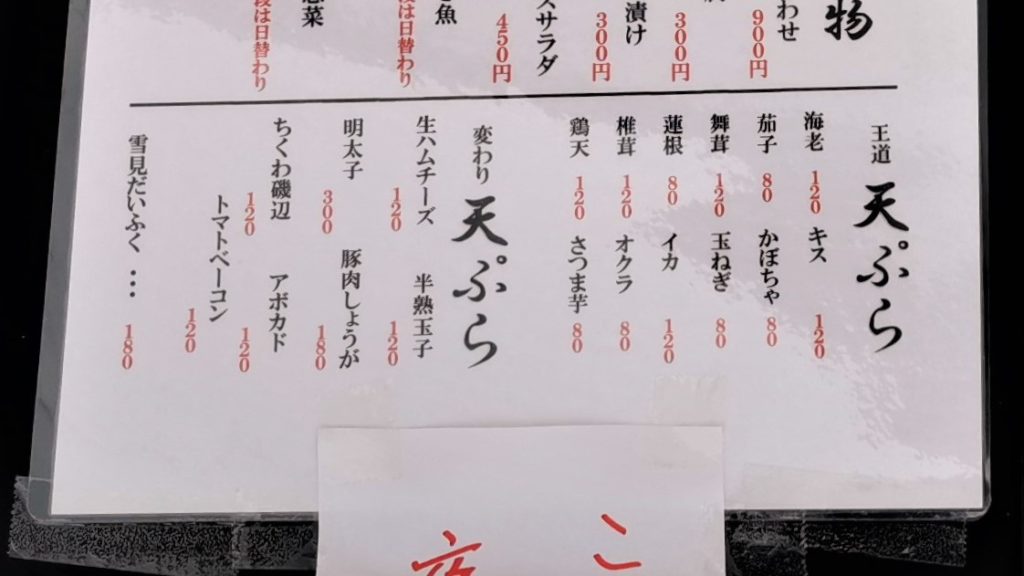 物
わせ
900円
300円
漬け
300円
スサラダ
450円
魚
は日替わり
菜
段は日替わり
王道 天ぷら
海老 120 キス 120
茄子 80 かぼちゃ 80
舞茸 120 玉ねぎ 80
蓮根 80 イカ 120
椎茸 120 オクラ 80
鶏天 120 さつま芋 80
変わり 天ぷら
生ハムチーズ 120 半熟玉子 120
明太子 300 豚肉しょうが 180
ちくわ磯辺 120 アボカド 120
トマトベーコン 120
雪見だいふく … 180
こ
夜